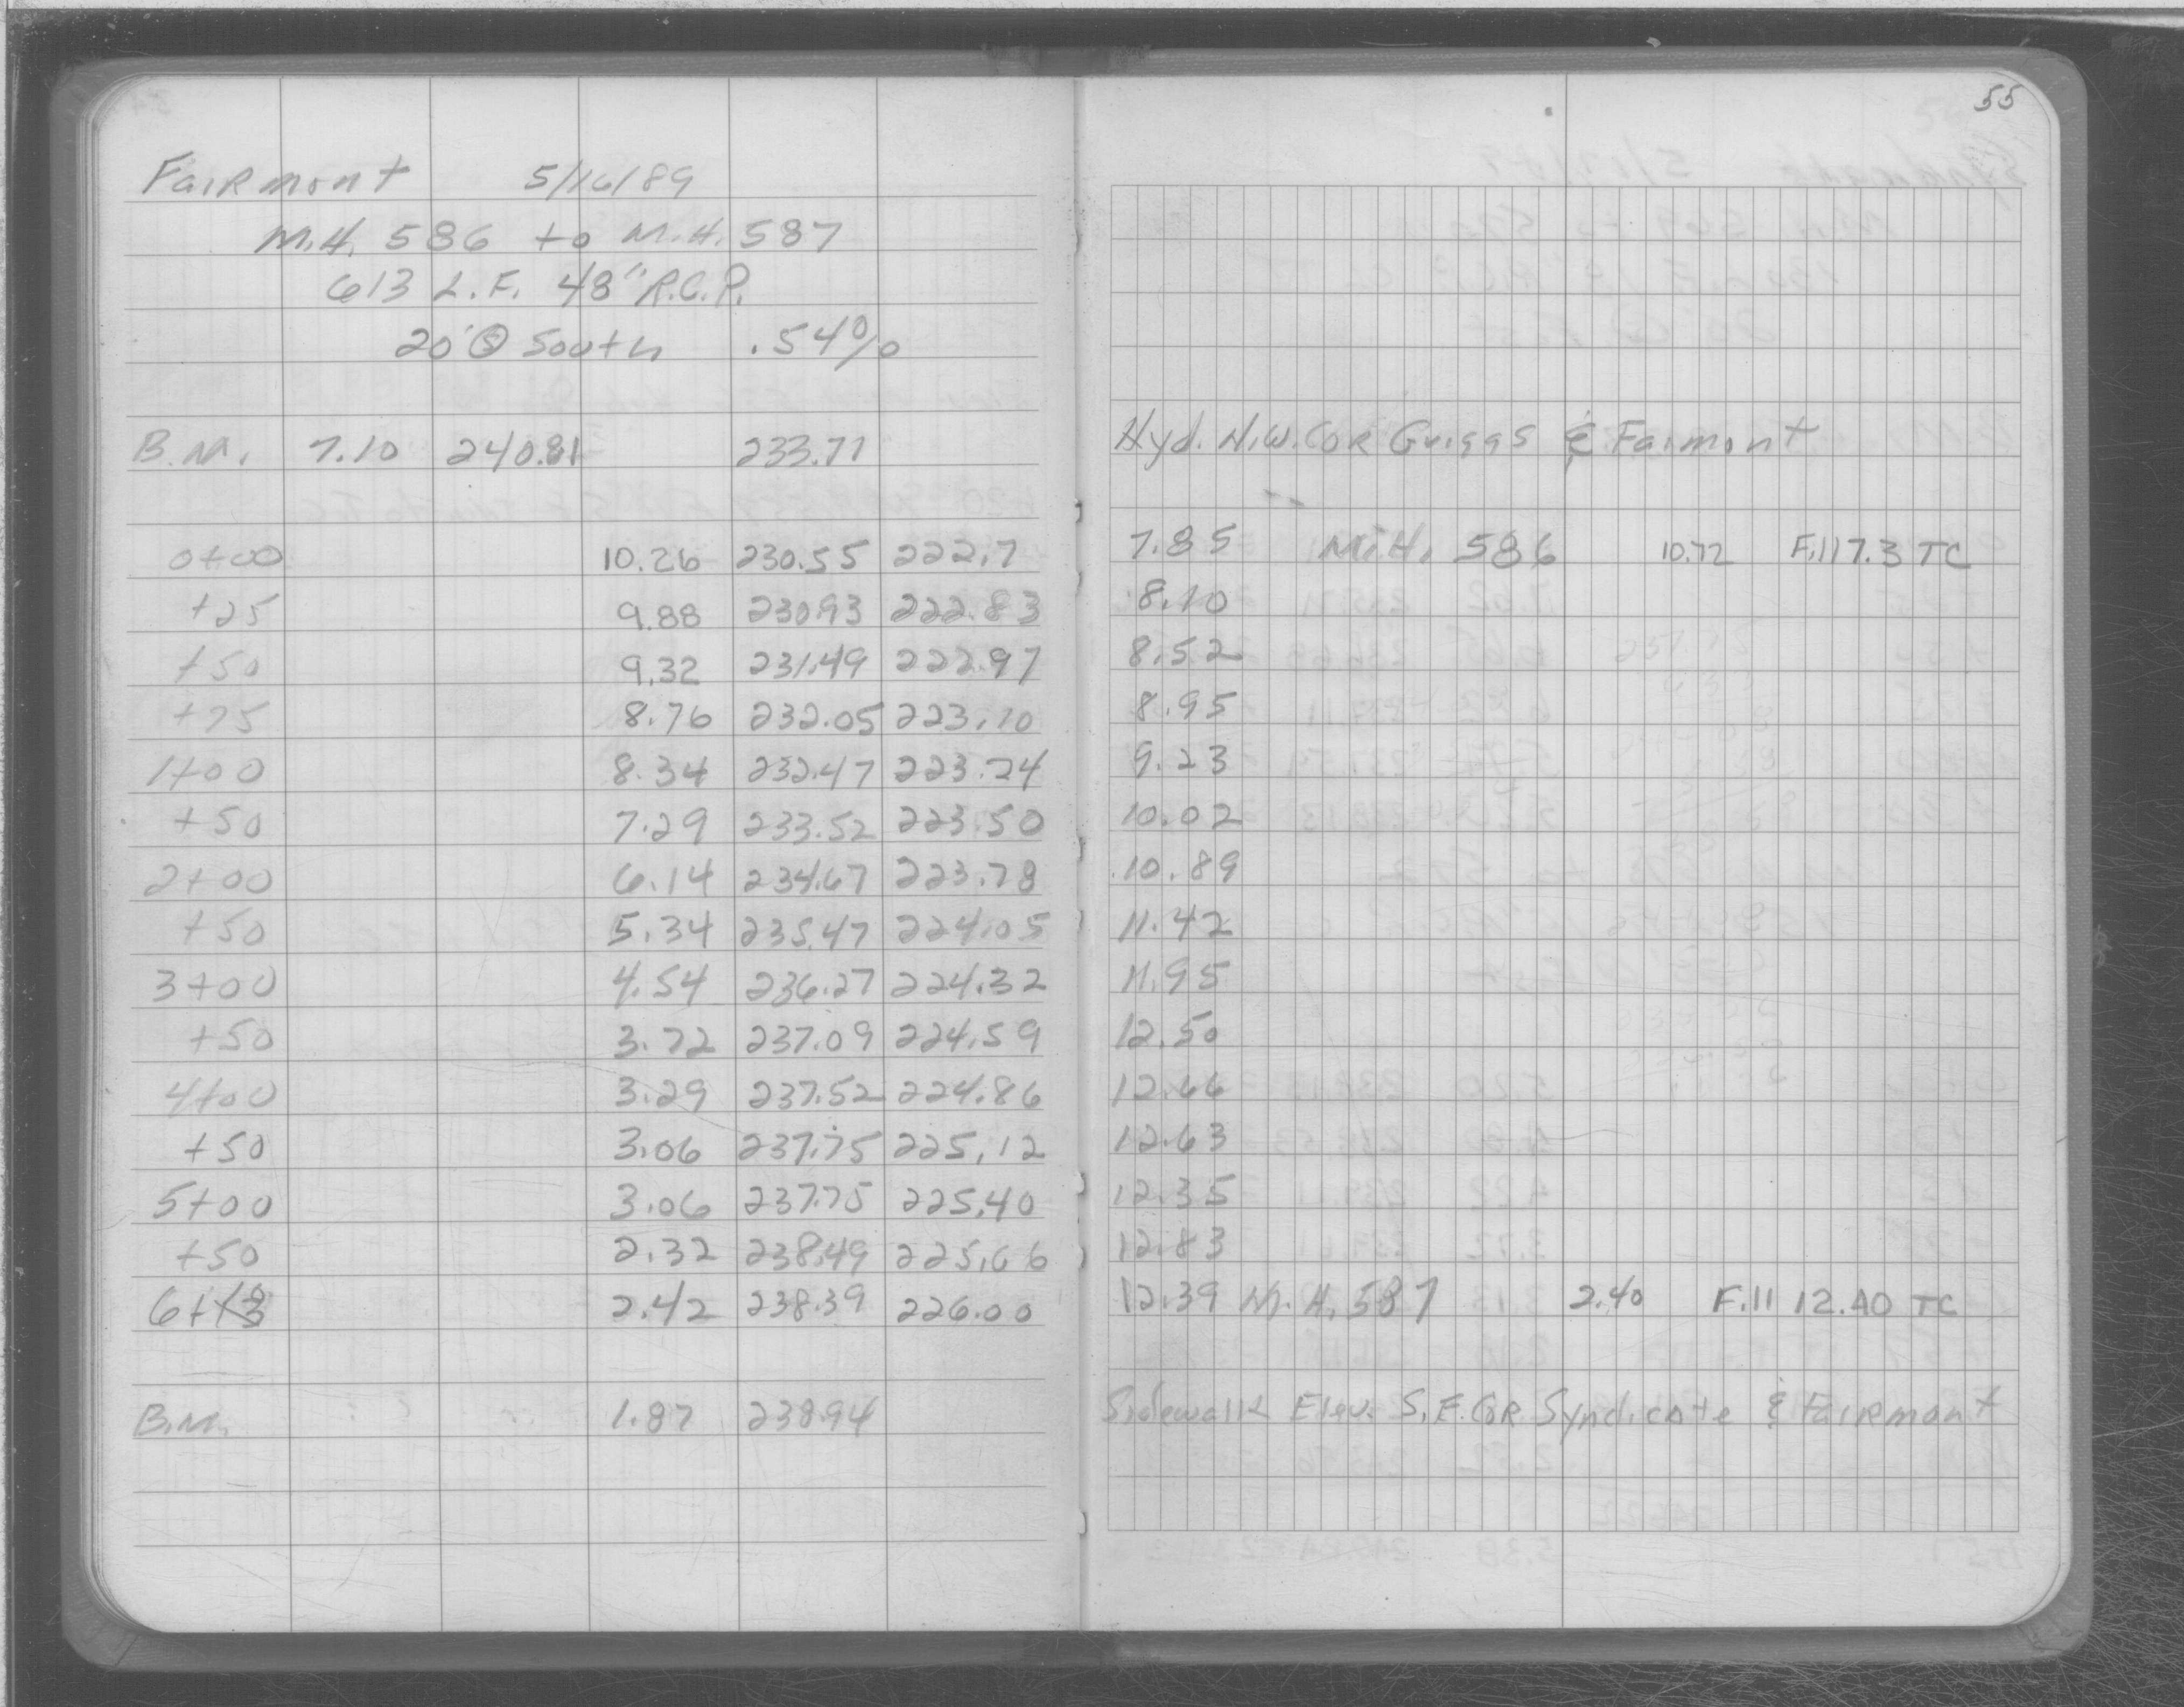 55
Fairmont 5/16/89
M.H. 586 to M.H. 587
613 L.F. 48" R.C.P.
20' South .54%
B.M. 7.10 240.81 233.71 Hyd. N.W. Cor Griggs & Fairmont
0+00 10.26 230.55 222.7 7.85 M.H. 586 10.72 Fill 7.3 TC
+25 9.88 230.93 222.83 8.10
+50 9.32 231.49 222.97 8.52
+75 8.76 232.05 223.10 8.95
1+00 8.34 232.47 223.24 9.23
+50 7.29 233.52 223.50 10.02
2+00 6.14 234.67 223.78 10.89
+50 5.34 235.47 224.05 11.42
3+00 4.54 236.27 224.32 11.95
+50 3.72 237.09 224.59 12.50
4+00 3.29 237.52 224.86 12.66
+50 3.06 237.75 225.12 12.63
5+00 3.06 237.75 225.40 12.35
+50 2.32 238.49 225.66 12.83
2.42 238.39 226.00 12.39 M.H. 587 2.40 Fill 12.40 TC
B.M. 1.87 238.94 Sidewalk Elev. S.E. Cor Syndicate & Fairmont